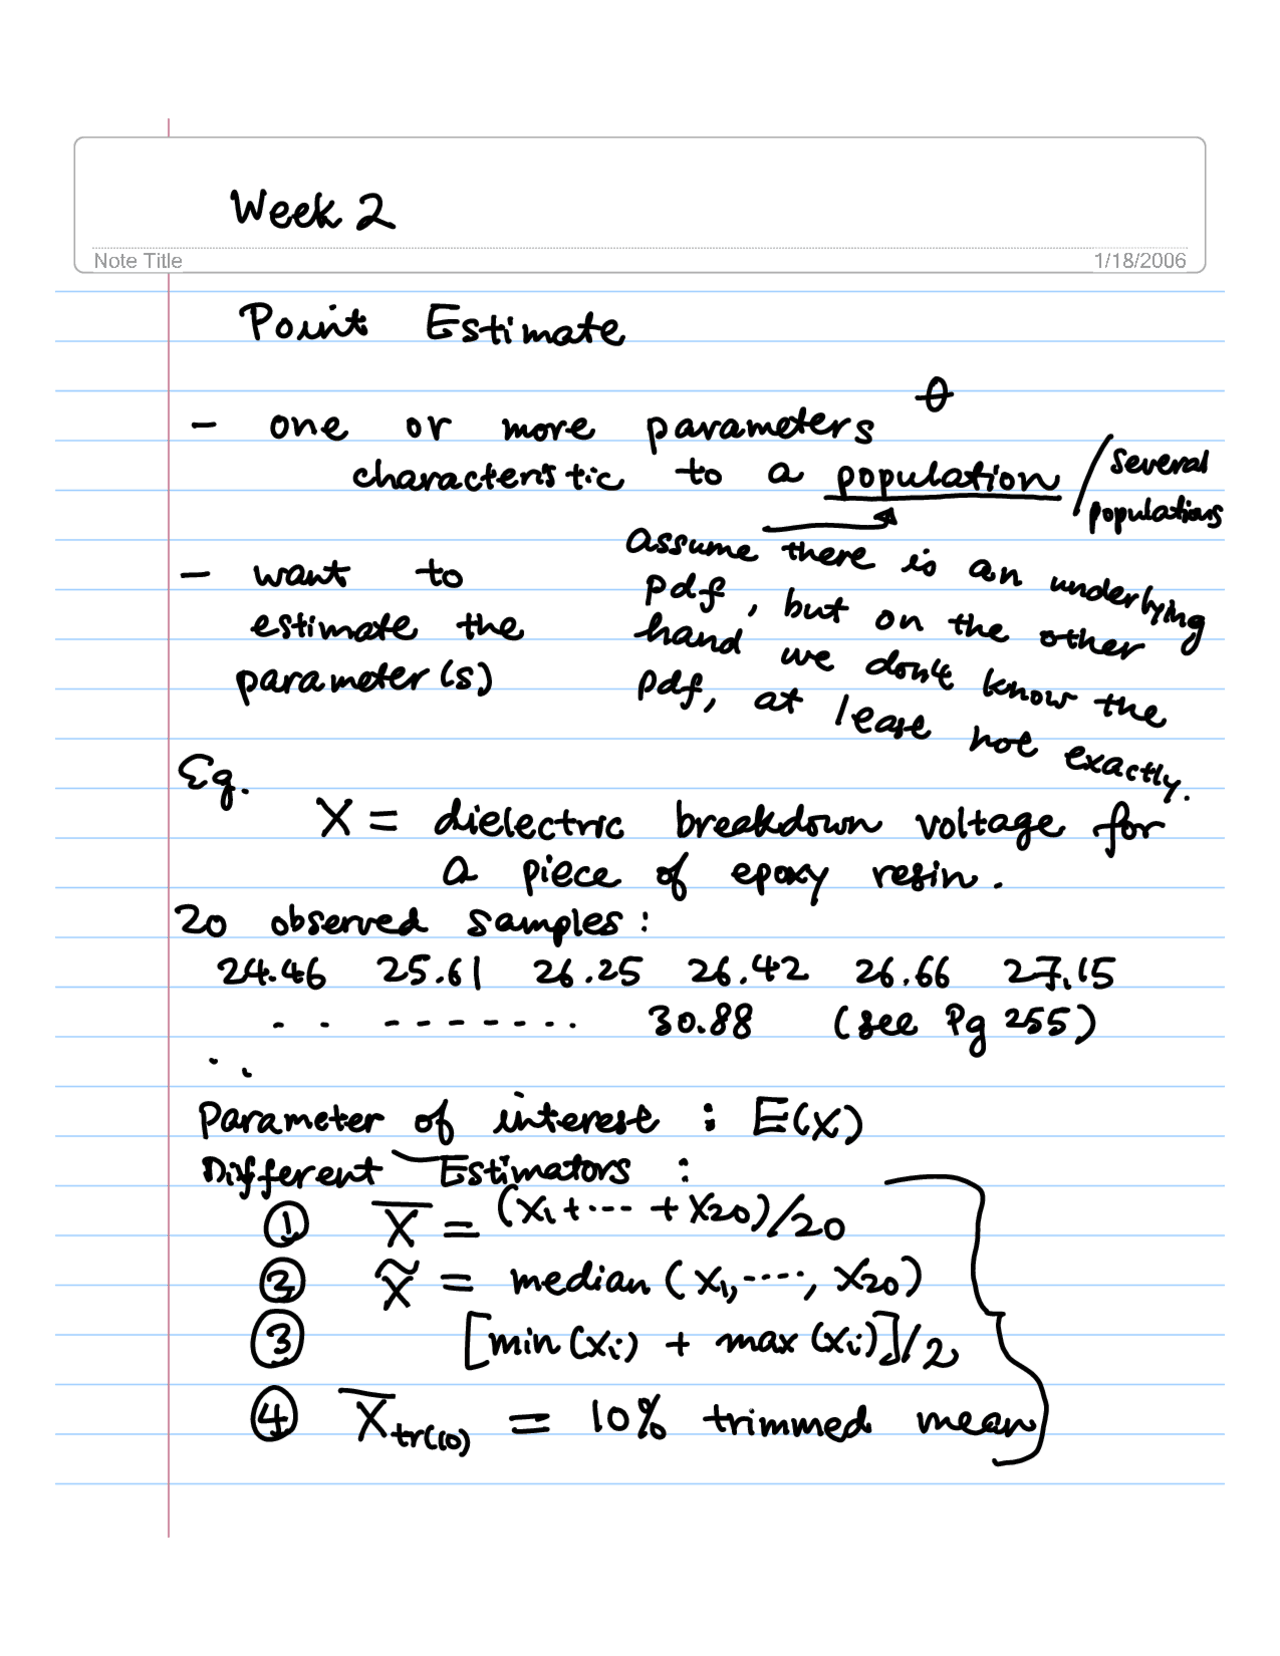 Week 2
Note Title
1/18/2006
Point Estimate
θ
- one or more parameters
characteristic to a population / several populations
- want to
estimate the
parameter(s)
Assume there is an underlying
pdf, but on the other
hand we don't know the
pdf, at lease not exactly.
Eg.
X = dielectric breakdown voltage for
a piece of epoxy resin.
20 observed samples :
24.46 25.61 26.25 26.42 26.66 27.15
-- -------- 30.88 (see Pg 255)
Parameter of interest : E(X)
Different Estimators :
① X̅ = (X₁+ ... + X₂₀)/20
② X̃ = median (X₁, ...., X₂₀)
③ [min (Xᵢ) + max (Xᵢ)]/2
④ X̅tr(10) = 10% trimmed mean